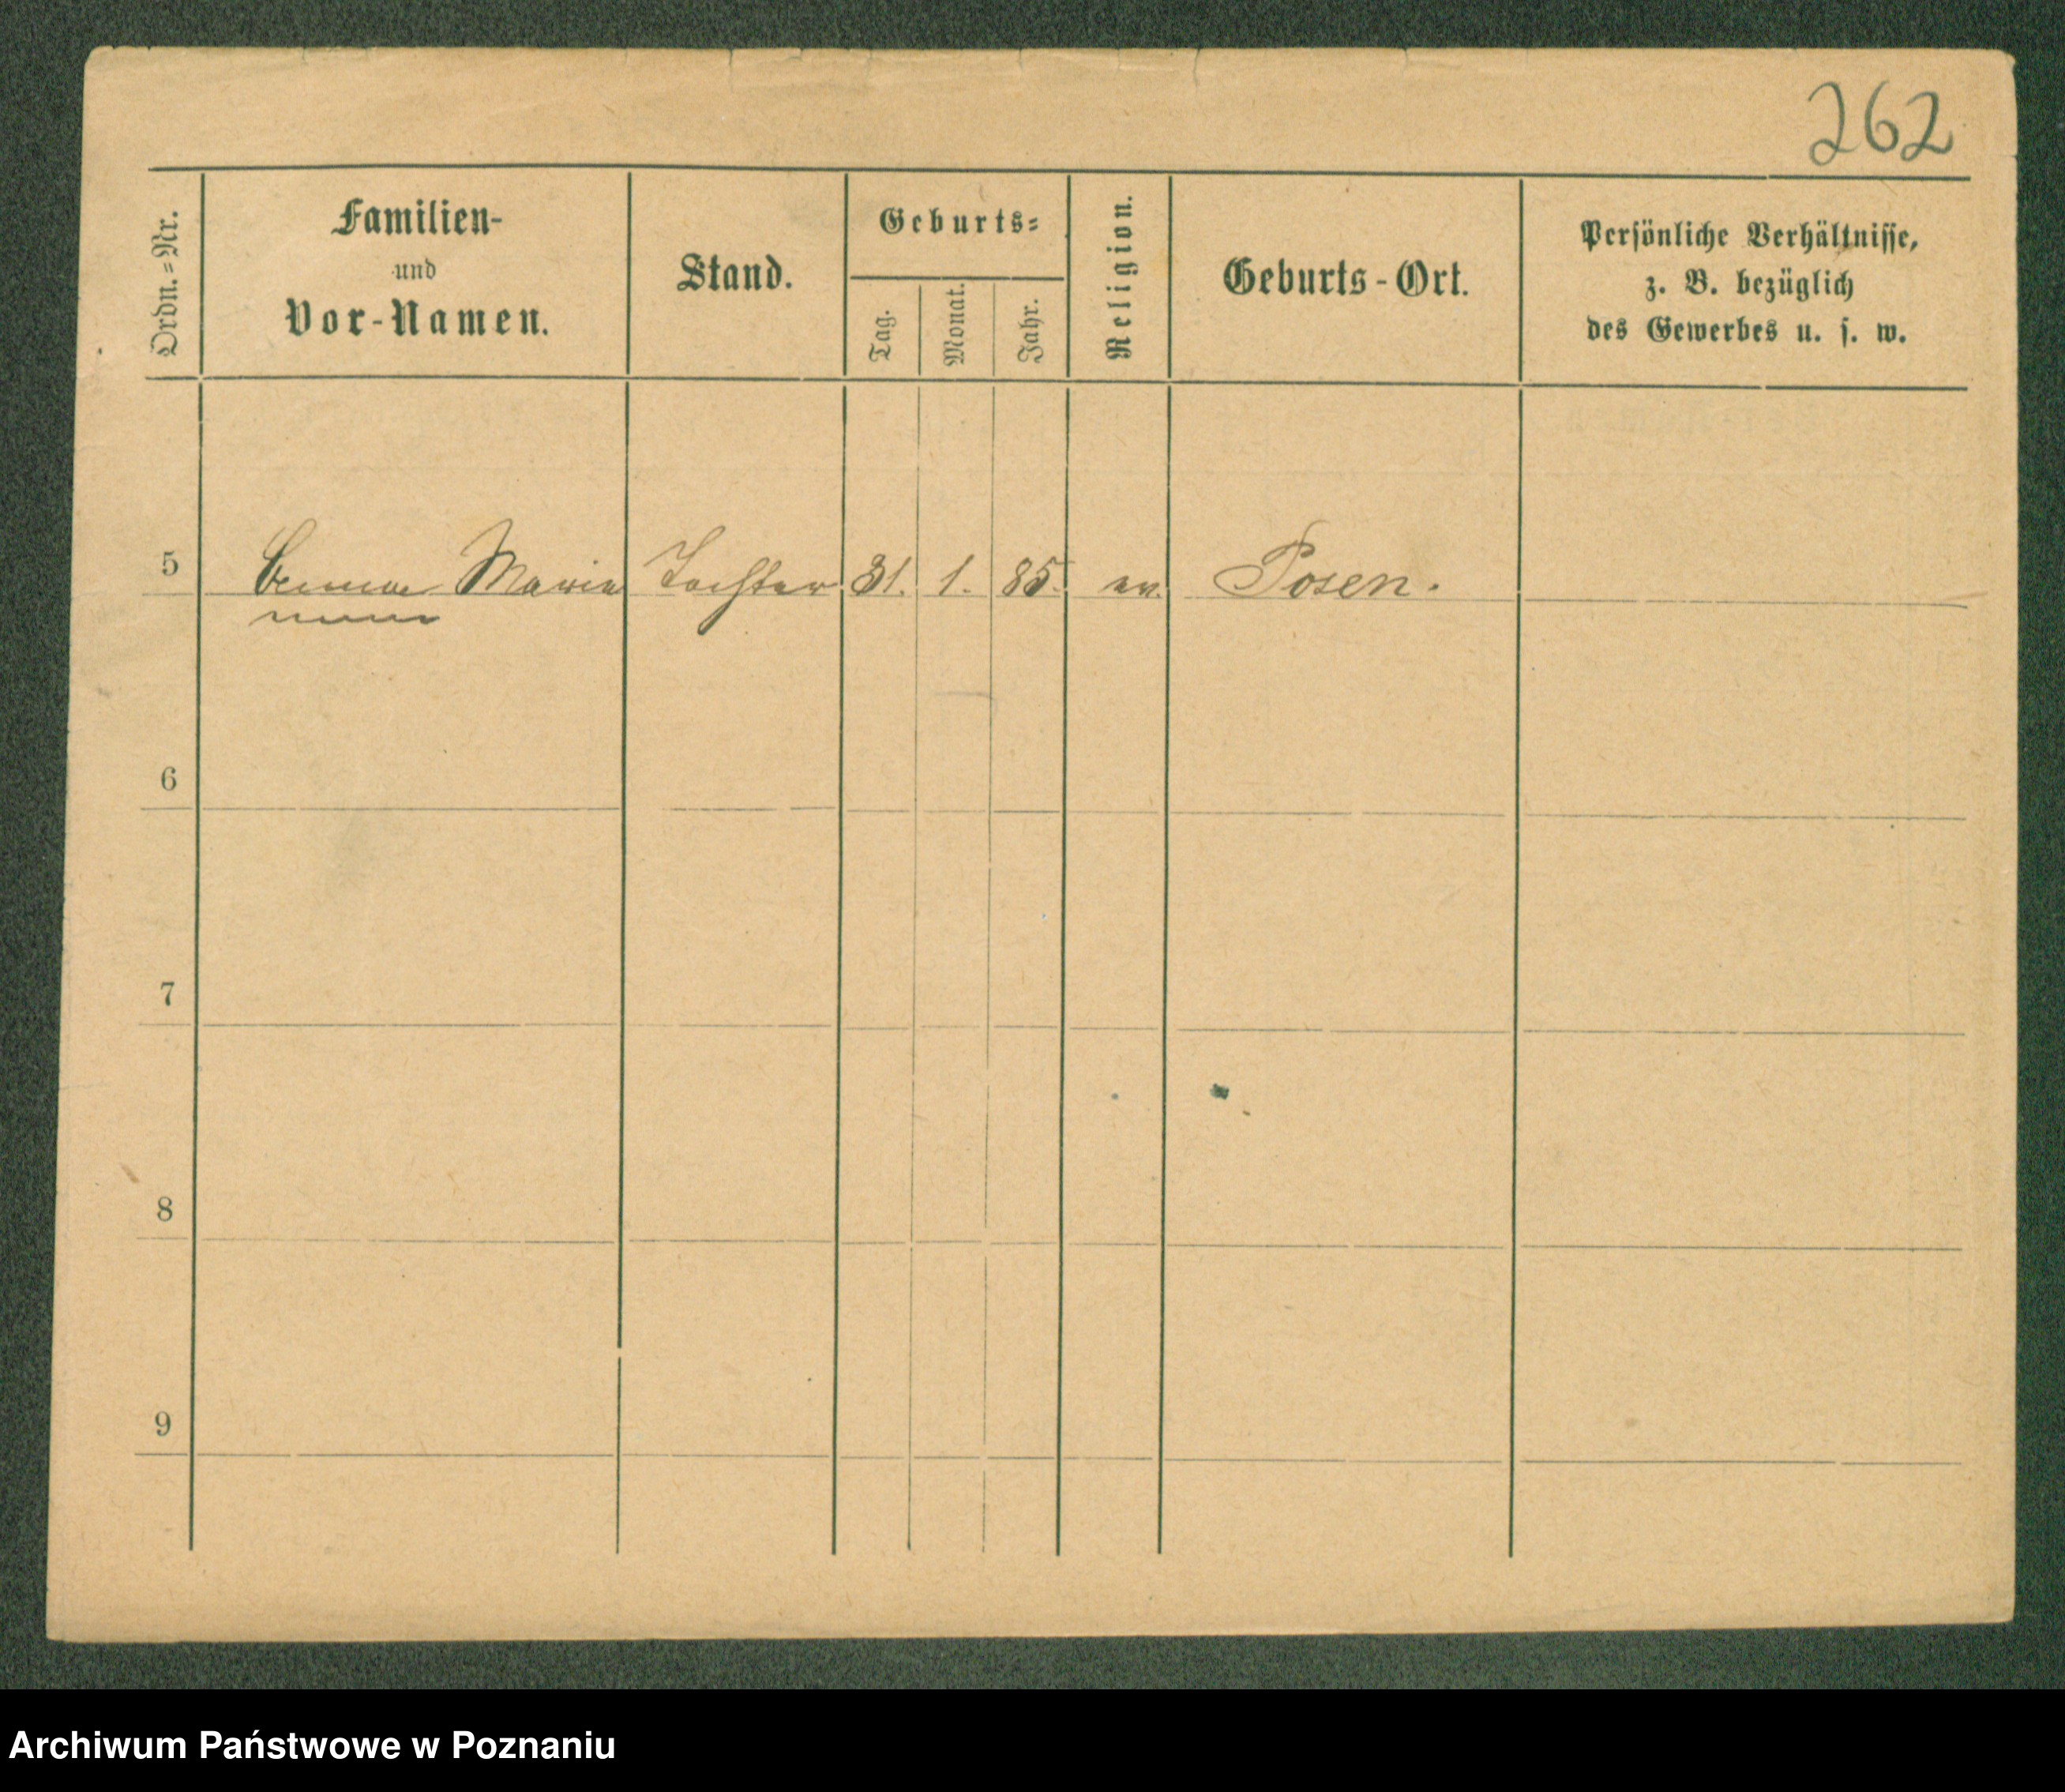 262
Ordn.=Nr.
Familien-
und
Vor-Namen.
Stand.
Geburts=
Tag.
Monat.
Jahr.
Religion.
Geburts-Ort.
Persönliche Verhältnisse,
z. B. bezüglich
des Gewerbes u. s. w.
5 Marie Tochter 31. 1. 85. ev. Posen.
6
7
8
9
Archiwum Państwowe w Poznaniu